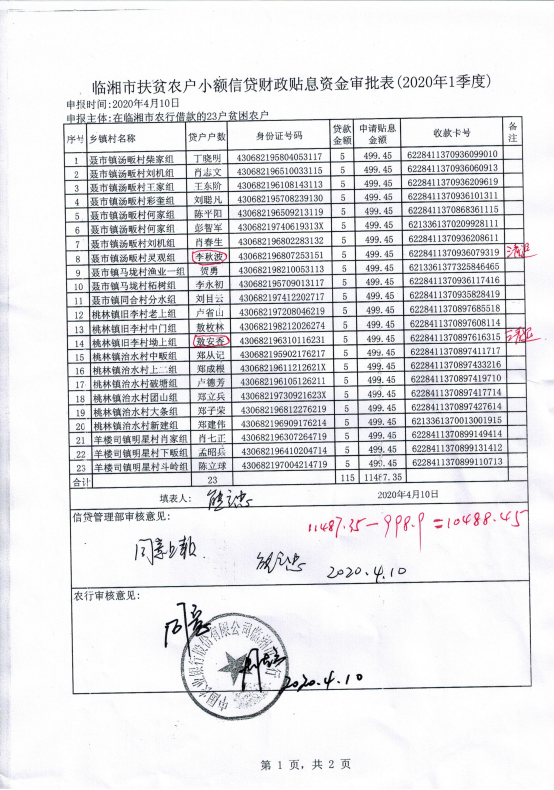 临湘市扶贫农户小额信贷财政贴息资金审批表(2020年1季度)
申报时间:2020年4月10日
申报主体:在临湘市农行借款的23户贫困农户
序号 乡镇村名称 贷户户数 身份证号码 贷款金额 申请贴息金额 收款卡号 备注
1 聂市镇汤畈村柴家组 丁晓明 430682195804053117 5 499.45 6228411370936099010
2 聂市镇汤畈村刘机组 肖志文 430682196510033115 5 499.45 6228411370936060913
3 聂市镇汤畈村王家组 王东阶 430682196108143113 5 499.45 6228411370936209619
4 聂市镇汤畈村彩奎组 刘聪凡 430682195708239130 5 499.45 6228411370936101311
5 聂市镇汤畈村何家组 陈平阳 430682196509213119 5 499.45 6228411370868361115
6 聂市镇汤畈村何家组 彭智军 43068219740619313X 5 499.45 6213361370209928111
7 聂市镇汤畈村刘机组 肖春生 430682196802283132 5 499.45 6228411370936208611
8 聂市镇汤畈村灵观组 李秋波 430682196807253151 5 499.45 6228411370936079319
9 聂市镇马垅村渔业一组 贺勇 430682198210053113 5 499.45 6213361377325846465
10 聂市镇马垅村柘树组 李永初 430682195709013117 5 499.45 6228411370936117416
11 聂市镇同合村分水组 刘目云 430682197412202717 5 499.45 6228411370935828419
12 桃林镇旧李村老上组 卢省山 430682197208046219 5 499.45 6228411370897685518
13 桃林镇旧李村中门组 敖枚林 430682198212026274 5 499.45 6228411370897608114
14 桃林镇旧李村坳上组 敖安香 430682196310116231 5 499.45 6228411370897616315
15 桃林镇治水村中畈组 郑从记 430682195902176217 5 499.45 6228411370897411717
16 桃林镇治水村上二组 郑成根 43068219611212621X 5 499.45 6228411370897433216
17 桃林镇治水村破塘组 卢德芳 430682196105126211 5 499.45 6228411370897419710
18 桃林镇治水村团山组 郑立兵 43068219730921623X 5 499.45 6228411370897417714
19 桃林镇治水村大条组 郑子荣 430682196812276219 5 499.45 6228411370897427614
20 桃林镇治水村新建组 郑建伟 430682196909176214 5 499.45 6213361370013001915
21 羊楼司镇明星村肖家组 肖七正 430682196307264719 5 499.45 6228411370899149414
22 羊楼司镇明星村下畈组 孟昭兵 430682196410204714 5 499.45 6228411370899131412
23 羊楼司镇明星村斗岭组 陈立球 430682197004214719 5 499.45 6228411370899110713
合计 23 115 11487.35
填表人: 2020年4月10日
信贷管理部审核意见:
11487.35-998.9=10488.45
同意上报
2020.4.10
农行审核意见:
同意
2020.4.10
第 1 页，共 2 页